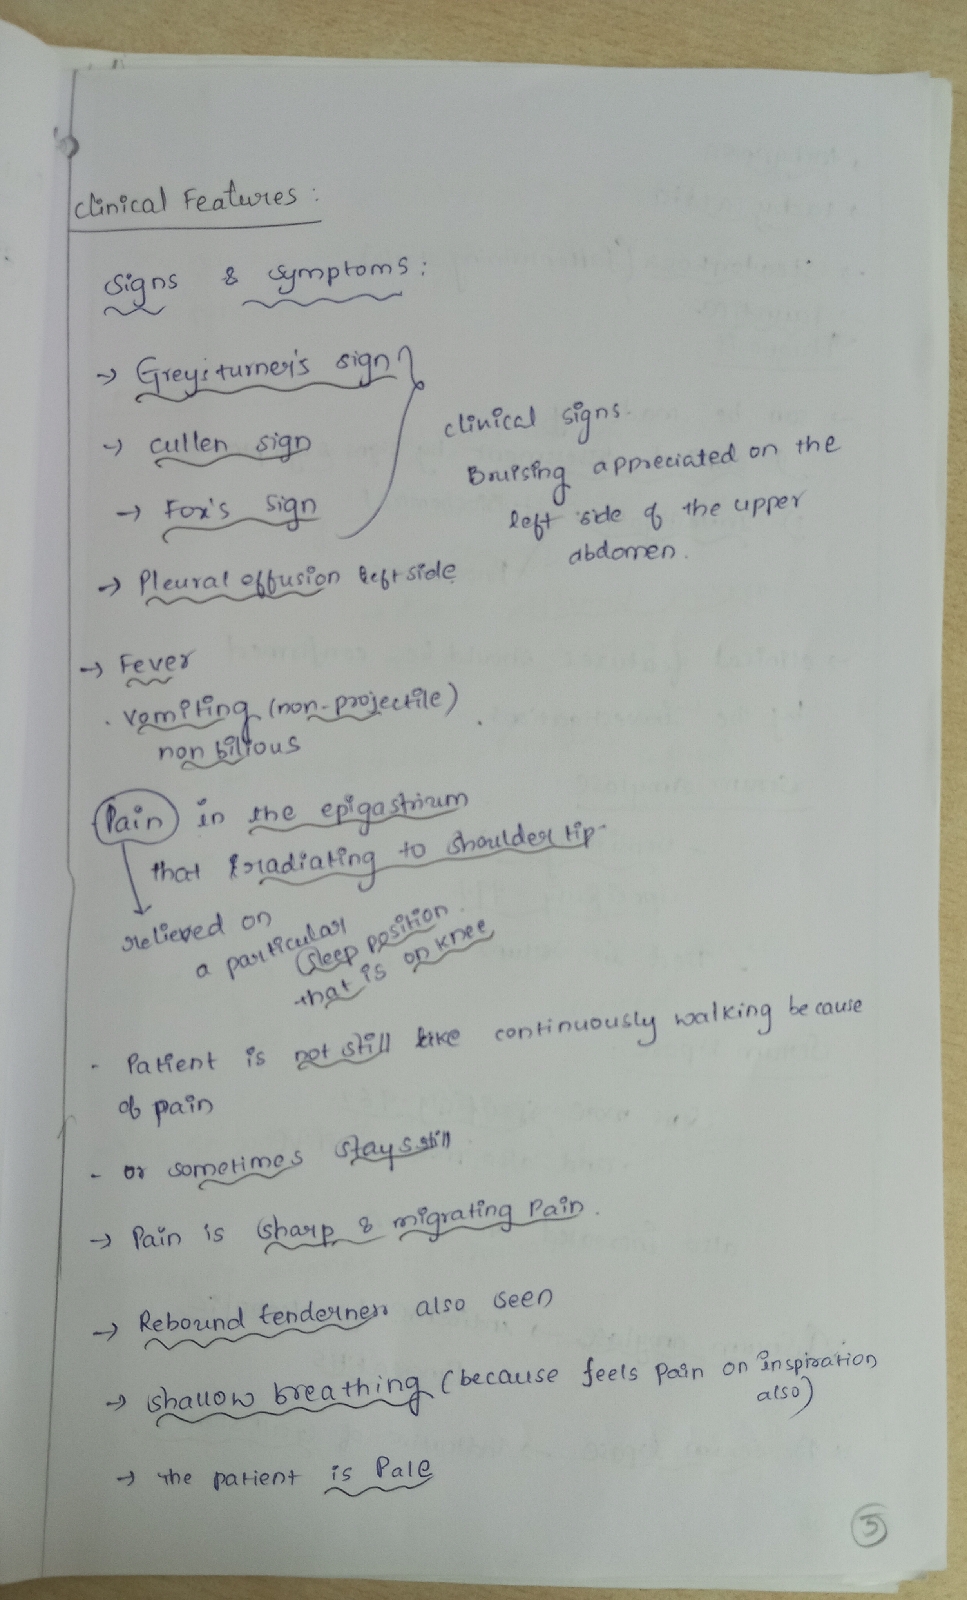 Clinical Features :
Signs & symptoms :
→ Grey's turner's sign
→ cullen sign
→ Fox's sign
clinical signs.
Bruising appreciated on the
left side of the upper
abdomen.
→ Pleural effusion left side
→ Fever
. vomiting (non-projectile) .
non bilious
Pain in the epigastrium
that irradiating to shoulder tip
relieved on
a particular
sleep position
that is on knee
- Patient is not still like continuously walking because
of pain
- or sometimes stays still
→ Pain is sharp & migrating Pain.
→ Rebound tenderness also seen
→ shallow breathing (because feels pain on inspiration
also)
→ The patient is Pale
5